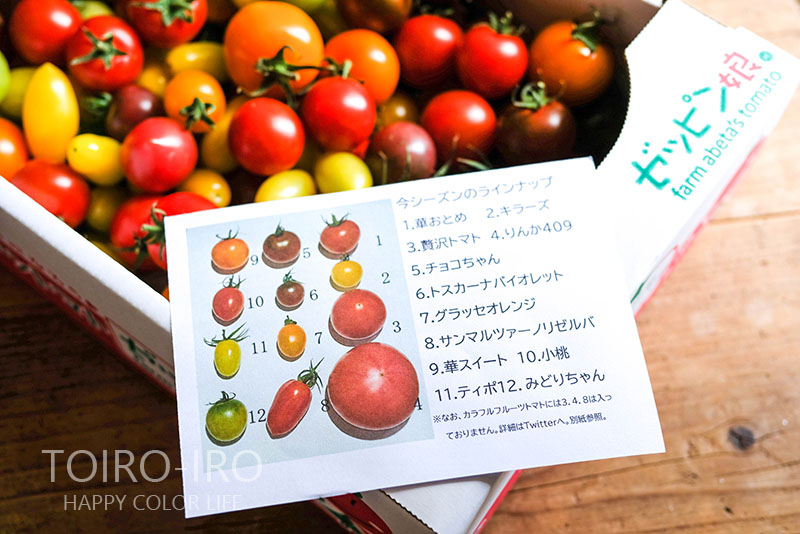 ゼッピン娘
farm abeta's tomato
今シーズンのラインナップ
1.華おとめ 2.キラーズ
3.贅沢トマト 4.りんか409
5.チョコちゃん
6.トスカーナバイオレット
7.グラッセオレンジ
8.サンマルツァーノリゼルバ
9.華スイート 10.小桃
11.ティポ12.みどりちゃん
※なお、カラフルフルーツトマトには3.4.8は入っ
ておりません。詳細はTwitterへ。別紙参照。
9 5 1
10 6 2
11 7 3
12 8 4
TOIRO-IRO
HAPPY COLOR LIFE